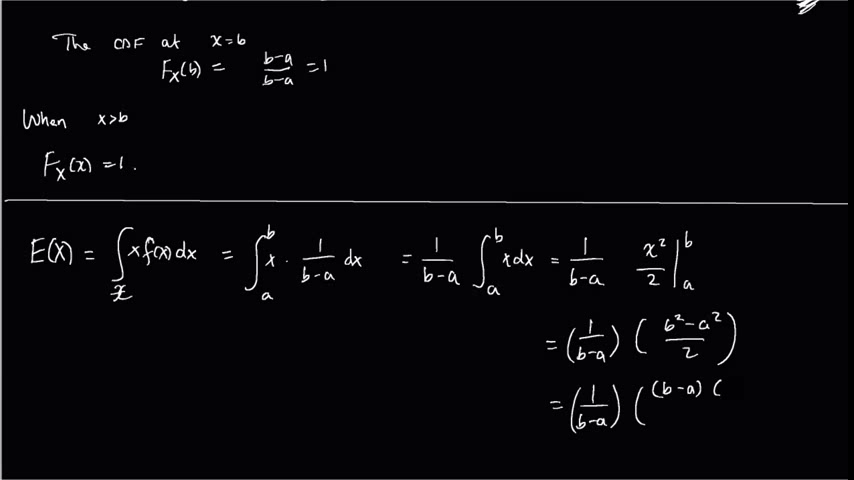 The CDF at x=b
F_X(b) = \frac{b-a}{b-a} = 1
When x>b
F_X(x) = 1.
E(X) = \int_{\mathcal{X}} x f(x) dx = \int_a^b x \cdot \frac{1}{b-a} dx = \frac{1}{b-a} \int_a^b x dx = \frac{1}{b-a} \frac{x^2}{2} \Big|_a^b
= \left( \frac{1}{b-a} \right) \left( \frac{b^2-a^2}{2} \right)
= \left( \frac{1}{b-a} \right) ( (b-a) (